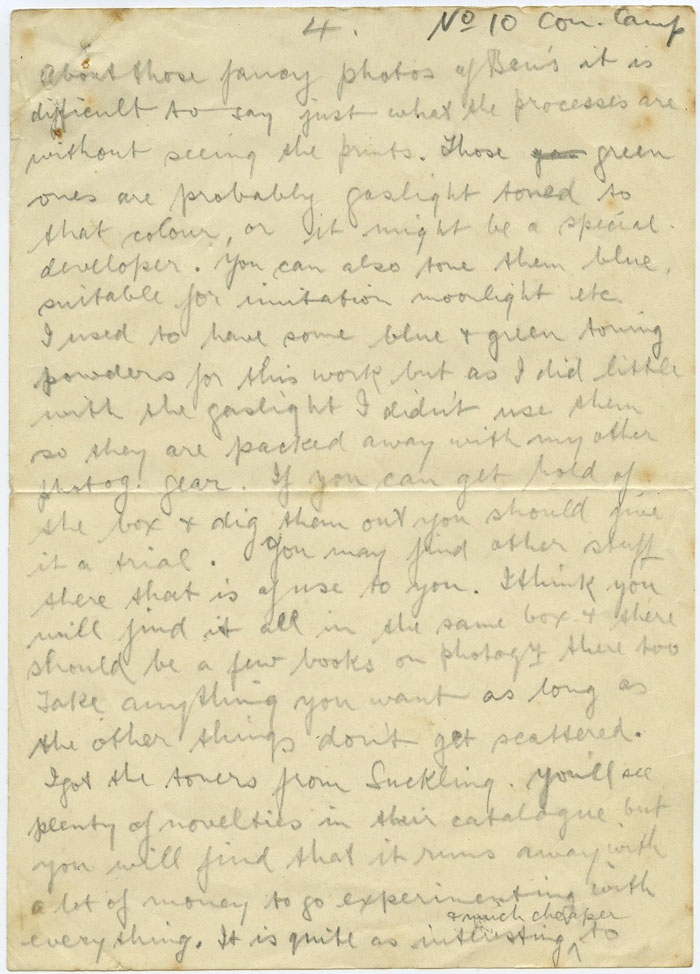 4. No 10 Con. Camp
About those fancy photos of Ben's it is
difficult to say just what the processes are
without seeing the prints. Those green
ones are probably gaslight toned to
that colour, or it might be a special
developer. You can also tone them blue,
suitable for imitation moonlight etc.
I used to have some blue & green toning
powders for this work but as I did little
with the gaslight I didn't use them
so they are packed away with my other
photog. gear. If you can get hold of
the box & dig them out you should give
it a trial. You may find other stuff
there that is of use to you. I think you
will find it all in the same box & there
should be a few books on photogy there too
Take anything you want as long as
the other things don't get scattered.
I got the toners from Suckling. You'll see
plenty of novelties in their catalogue but
you will find that it runs away with
a lot of money to go experimenting with
everything. It is quite as interesting & much cheaper to